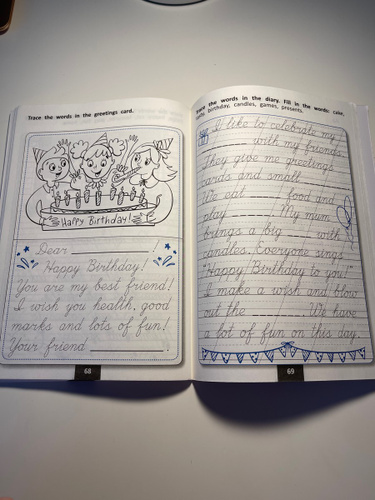 Trace the words in the greetings card.
Happy Birthday!
Dear __________!
Happy Birthday!
You are my best friend!
I wish you health, good
marks and lots of fun!
Your friend __________
68
Trace the words in the diary. Fill in the words: cake,
birthday, candles, games, presents.
I like to celebrate my
________ with my friends.
They give me greetings
cards and small ________.
We eat ________ food and
play ________. My mum
brings a big ________ with
candles. Everyone sings
"Happy Birthday to you!"
I make a wish and blow
out the ________. We have
a lot of fun on this day.
69